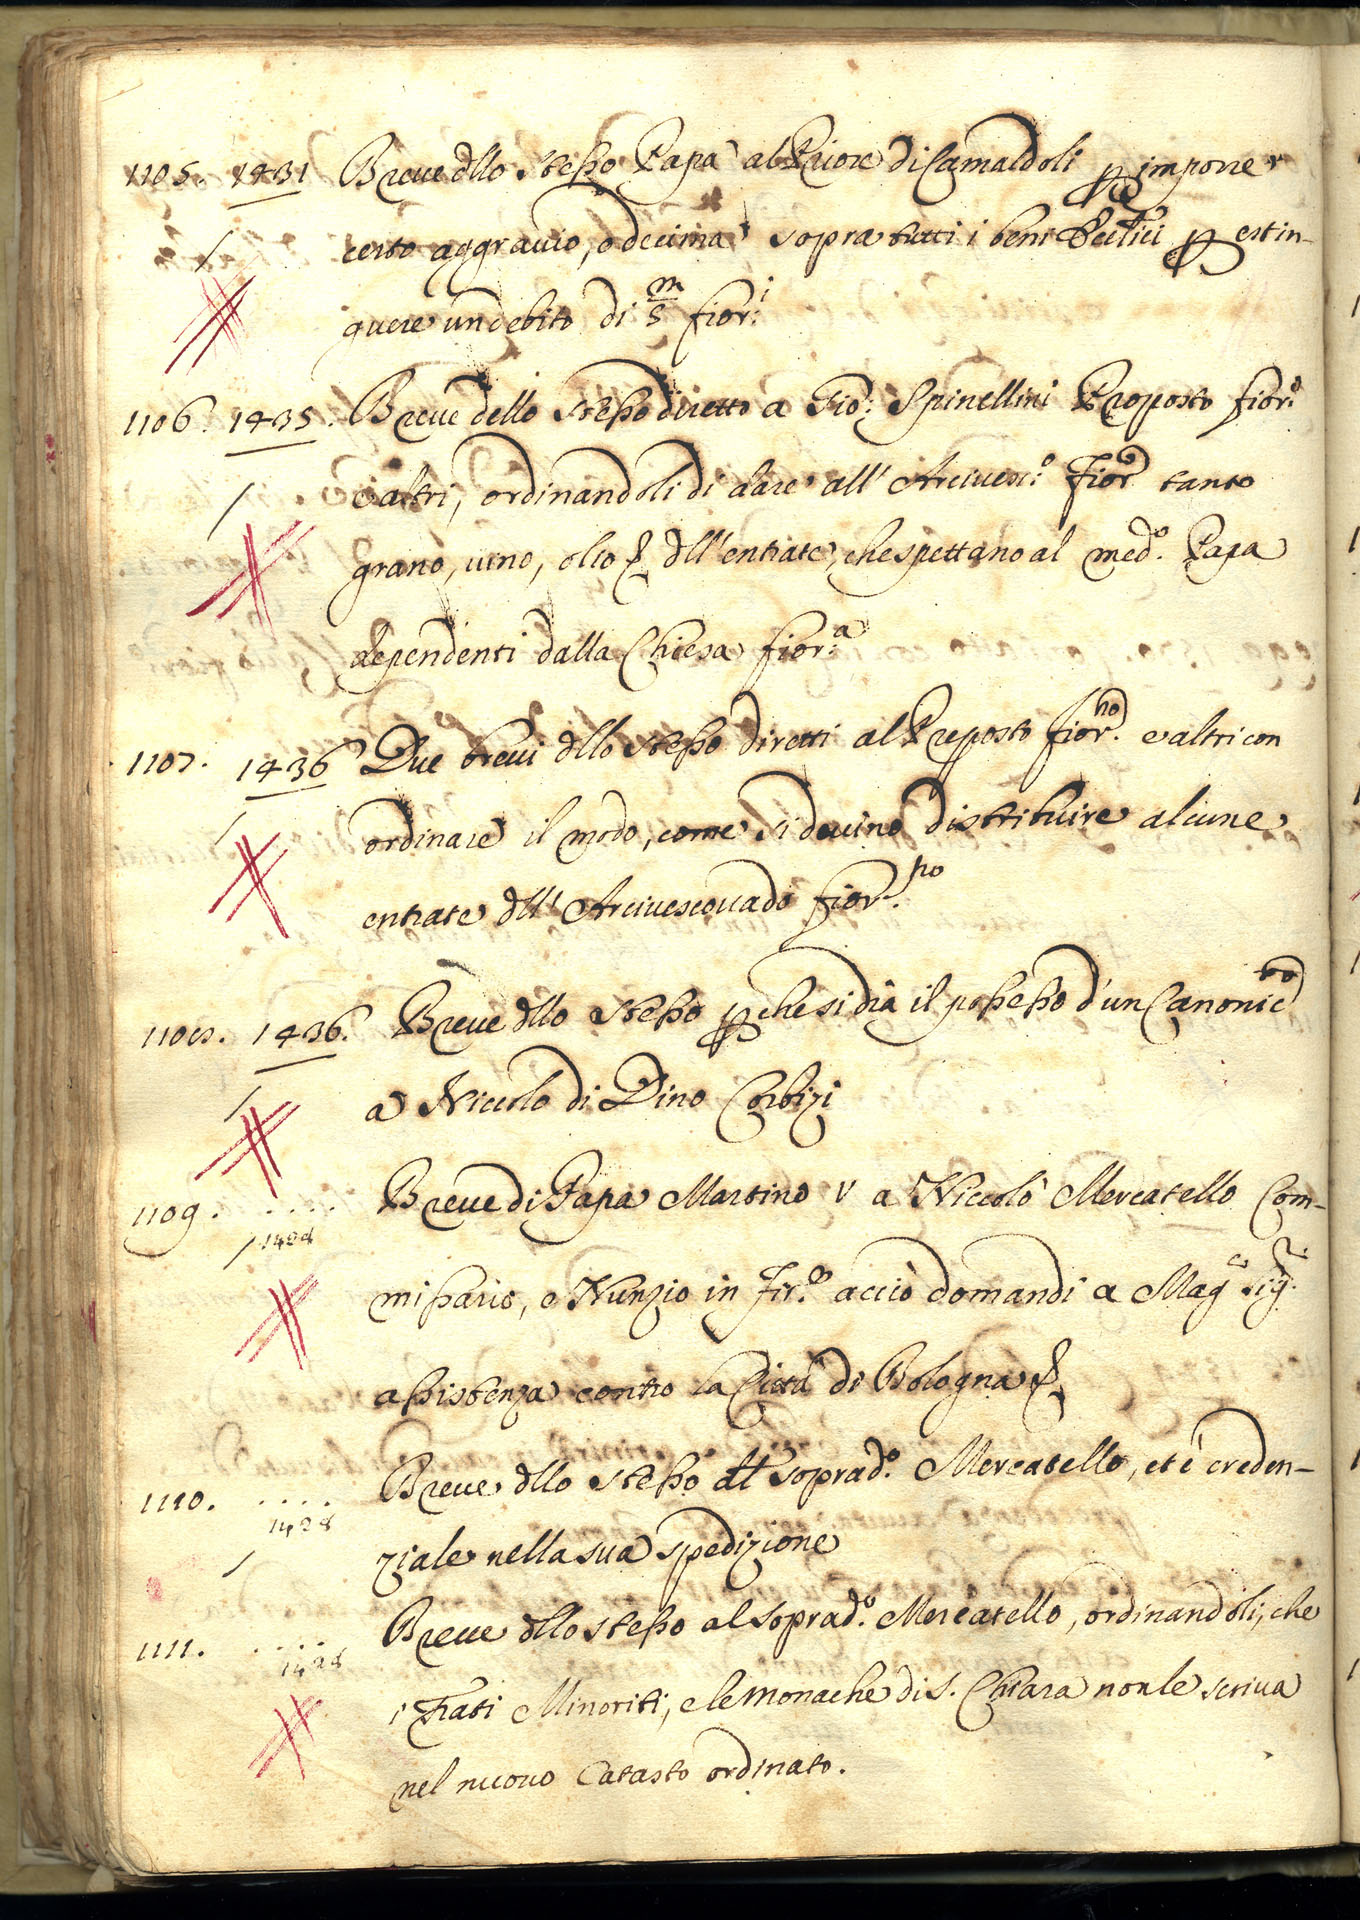 1105. 1431 Breve dllo stesso Papa al Priore di Camaldoli p imporre
certo aggravio, o decima sopra tutti i beni Eccl.ici p estin-
guere un debito di 5 m fior:i
1106. 1435. Breve dello stesso diretto a Gio: Spinellini Proposto fior:o
e altri, ordinandoli di dare all' Arcivesc:o Fior.o tanto
grano, vino, olio & dll' entrate, che spettano al med.o Papa
dependenti dalla Chiesa fior:a
1107. 1436 Due brevi dllo stesso diretti al Preposto fior.no e altri con
ordinare il modo, come si devino distribuire alcune
entrate dll' Arcivescovado fior.no
1108. 1436. Breve dllo stesso p che si dia il possesso d'un Canonic.to
a Niccolo di Dino Corbizi
1109. ..... Breve di Papa Martino V a Niccolò Mercatello Com-
1428
missario, e Nunzio in Fir.e acciò domandi a Mag.ci Sig.ri
assistenza contro la Città di Bologna &
1110. .... Breve dllo stesso al soprad.o Mercatello, et è creden-
1428
ziale nella sua spedizione
1111. .... Breve dllo stesso al soprad.o Mercatello, ordinandoli, che
1428
i Frati Minoriti, e le Monache di S. Chiara non le scriva
nel nuovo Catasto ordinato.